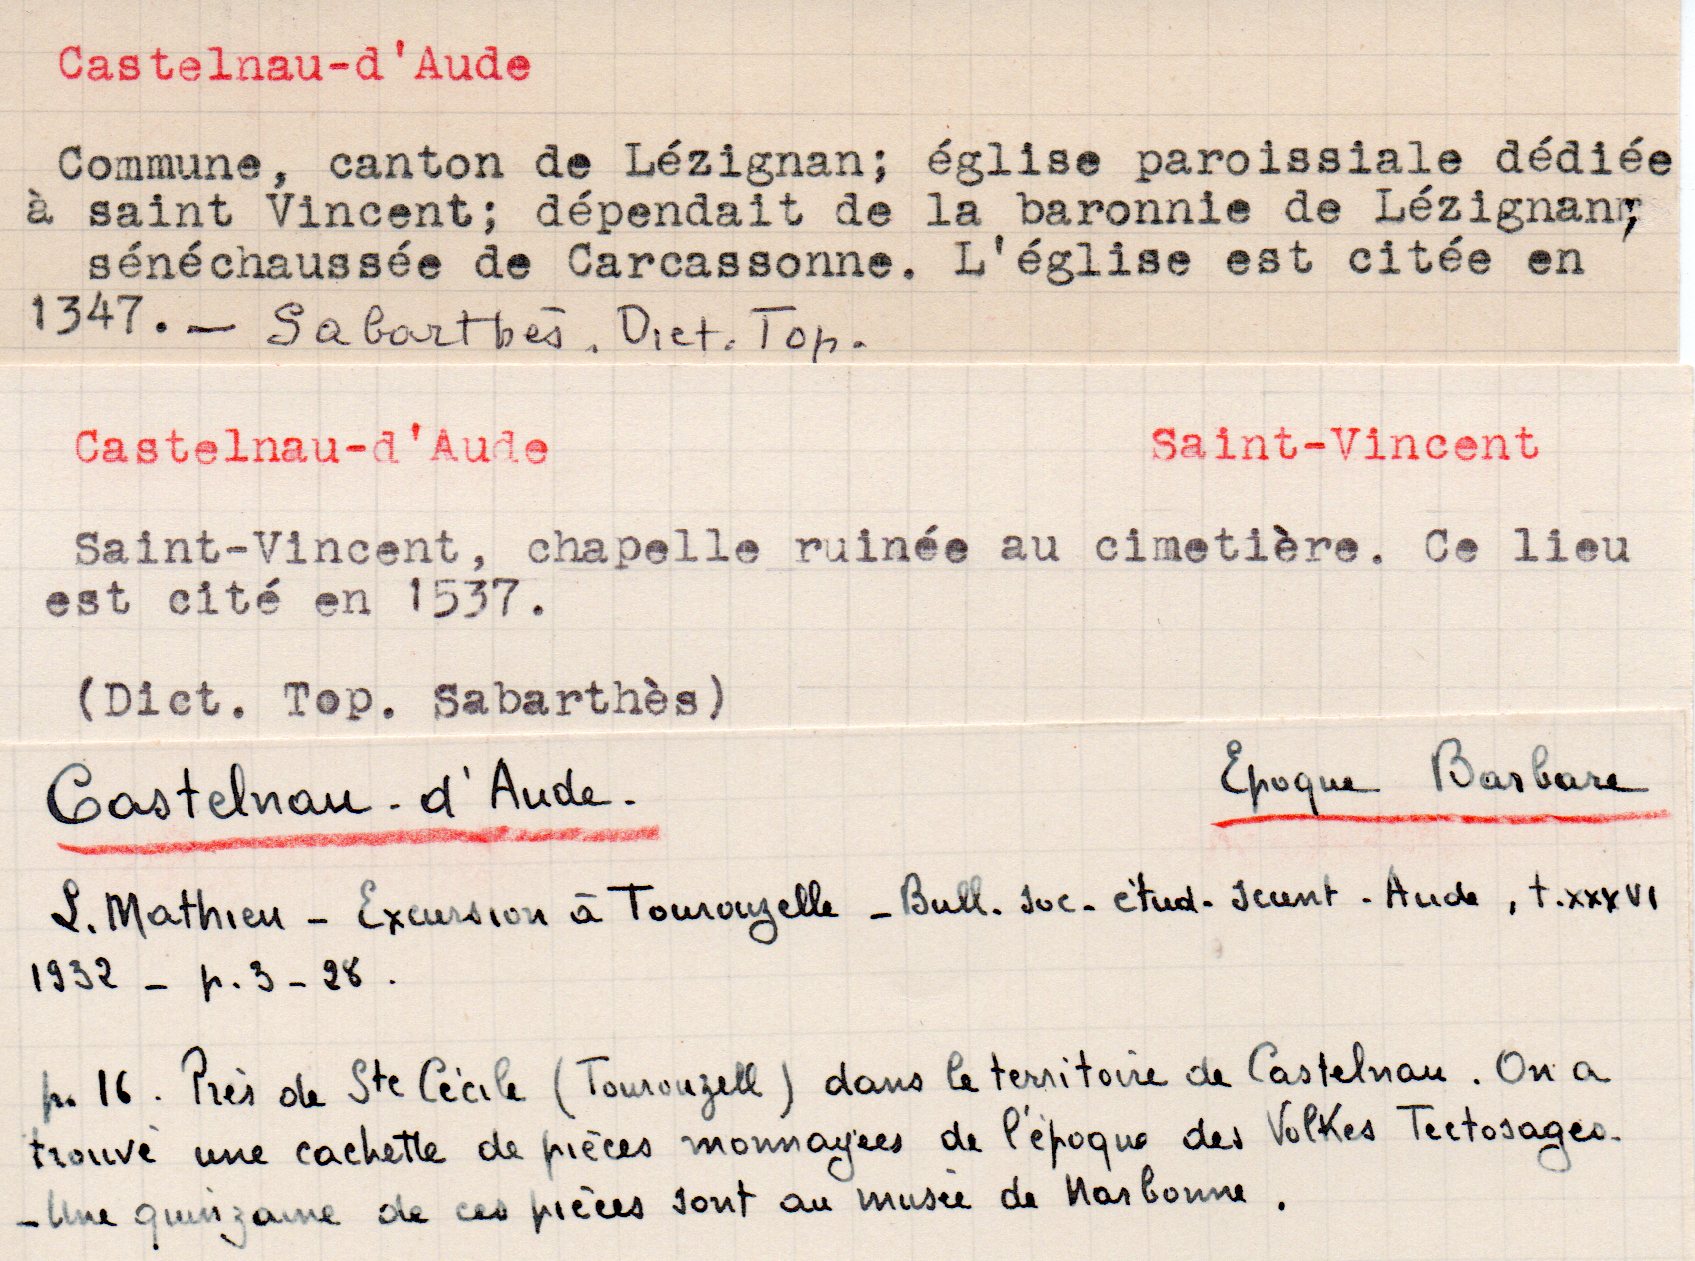 Castelnau-d'Aude
Commune, canton de Lézignan; église paroissiale dédiée
à saint Vincent; dépendait de la baronnie de Lézignan;
sénéchaussée de Carcassonne. L'église est citée en
1347. — Sabarthès. Dict. Top.
Castelnau-d'Aude Saint-Vincent
Saint-Vincent, chapelle ruinée au cimetière. Ce lieu
est cité en 1537.
(Dict. Top. Sabarthès)
Castelnau-d'Aude. Epoque Barbare
L. Mathieu - Excursion à Tourouzelle - Bull. soc. étud. scient. Aude, t. XXXVI
1932 - p. 3-28.
p. 16. Près de Ste Cécile (Tourouzell) dans le territoire de Castelnau. On a
trouvé une cachette de pièces monnayées de l'époque des Volkes Tectosages.
- Une quinzaine de ces pièces sont au musée de Narbonne.